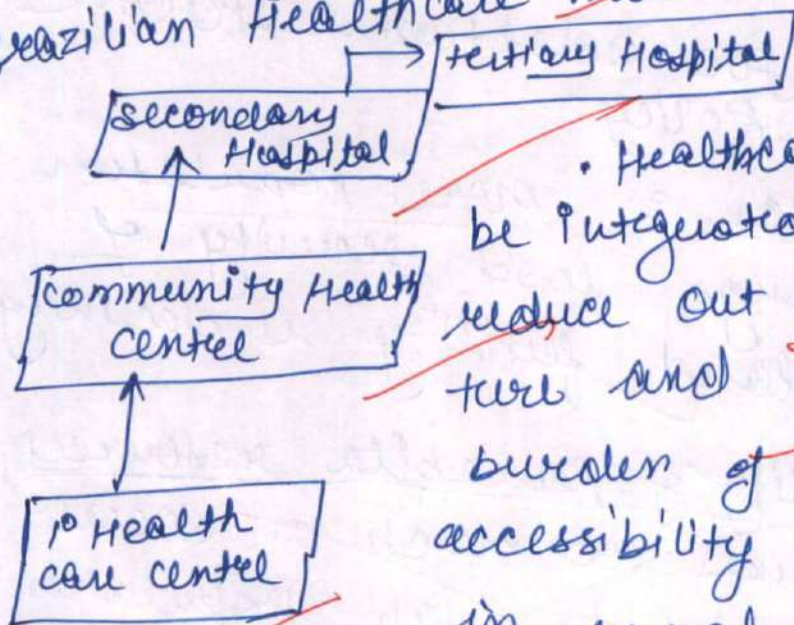 razilian Healthcare
tertiary Hospital
secondary
Hospital
Community Health
Centre
1° Health
care centre
. Healthca
be integrate
reduce out
ture and
burden of
accessibility
in